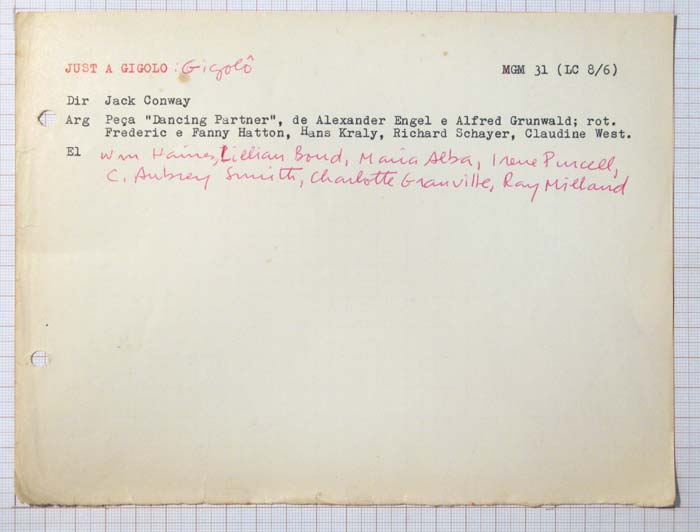 JUST A GIGOLO : Gigolô MGM 31 (LC 8/6)
Dir Jack Conway
Arg Peça "Dancing Partner", de Alexander Engel e Alfred Grunwald; rot.
Frederic e Fanny Hatton, Hans Kraly, Richard Schayer, Claudine West.
El Wm Haines, Lillian Bond, Maria Alba, Irene Purcell,
C. Aubrey Smith, Charlotte Granville, Ray Milland